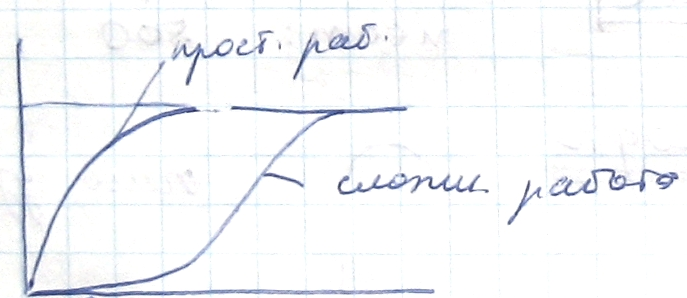 прост. раб.
сложн. работа